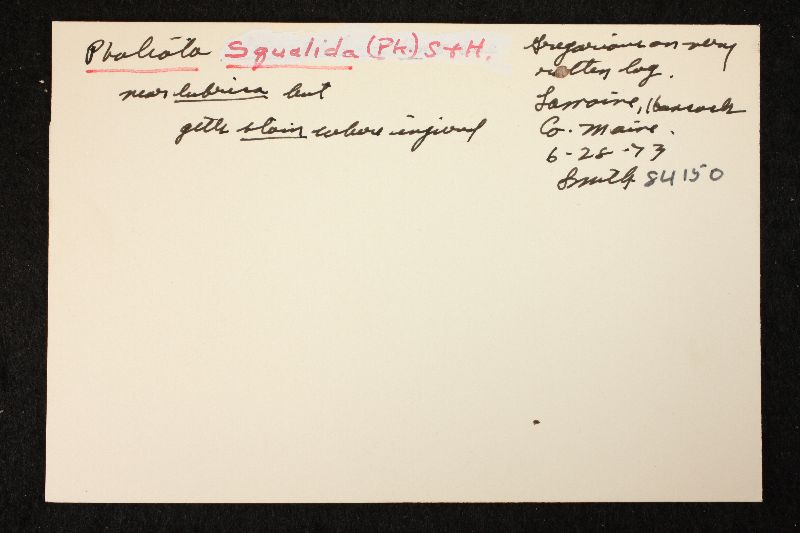 Pholiota Squalida (Pk.) S+H.
near lubrica but
gills stain where injured
Gregarious on very
rotten log.
Lamoine, Hancock
Co. Maine.
6-28-73
Smith 84150